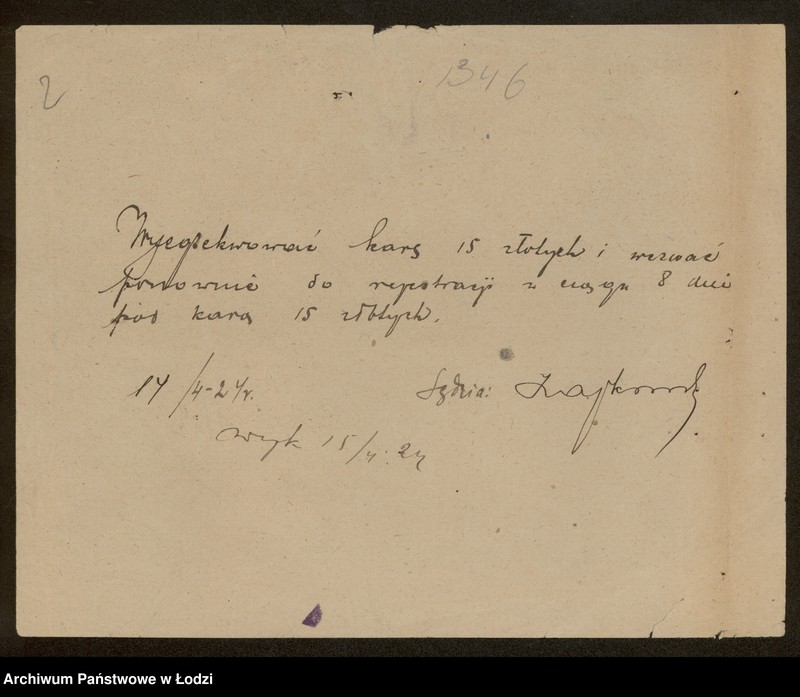 2
1346
Wyegzekwować karę 15 złotych i wezwać
ponownie do rejestracji w ciągu 8 dni
pod karą 15 złotych.
14/4-24r. Sędzia:
wyk 15/4.24
Archiwum Państwowe w Łodzi